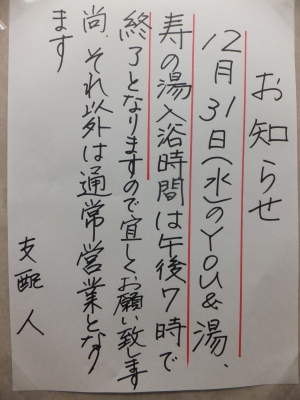 お知らせ
12月31日(水)のYOU&湯、
寿の湯入浴時間は午後7時で
終了となりますので宜しくお願い致します
尚、それ以外は通常営業となり
ます
支配人